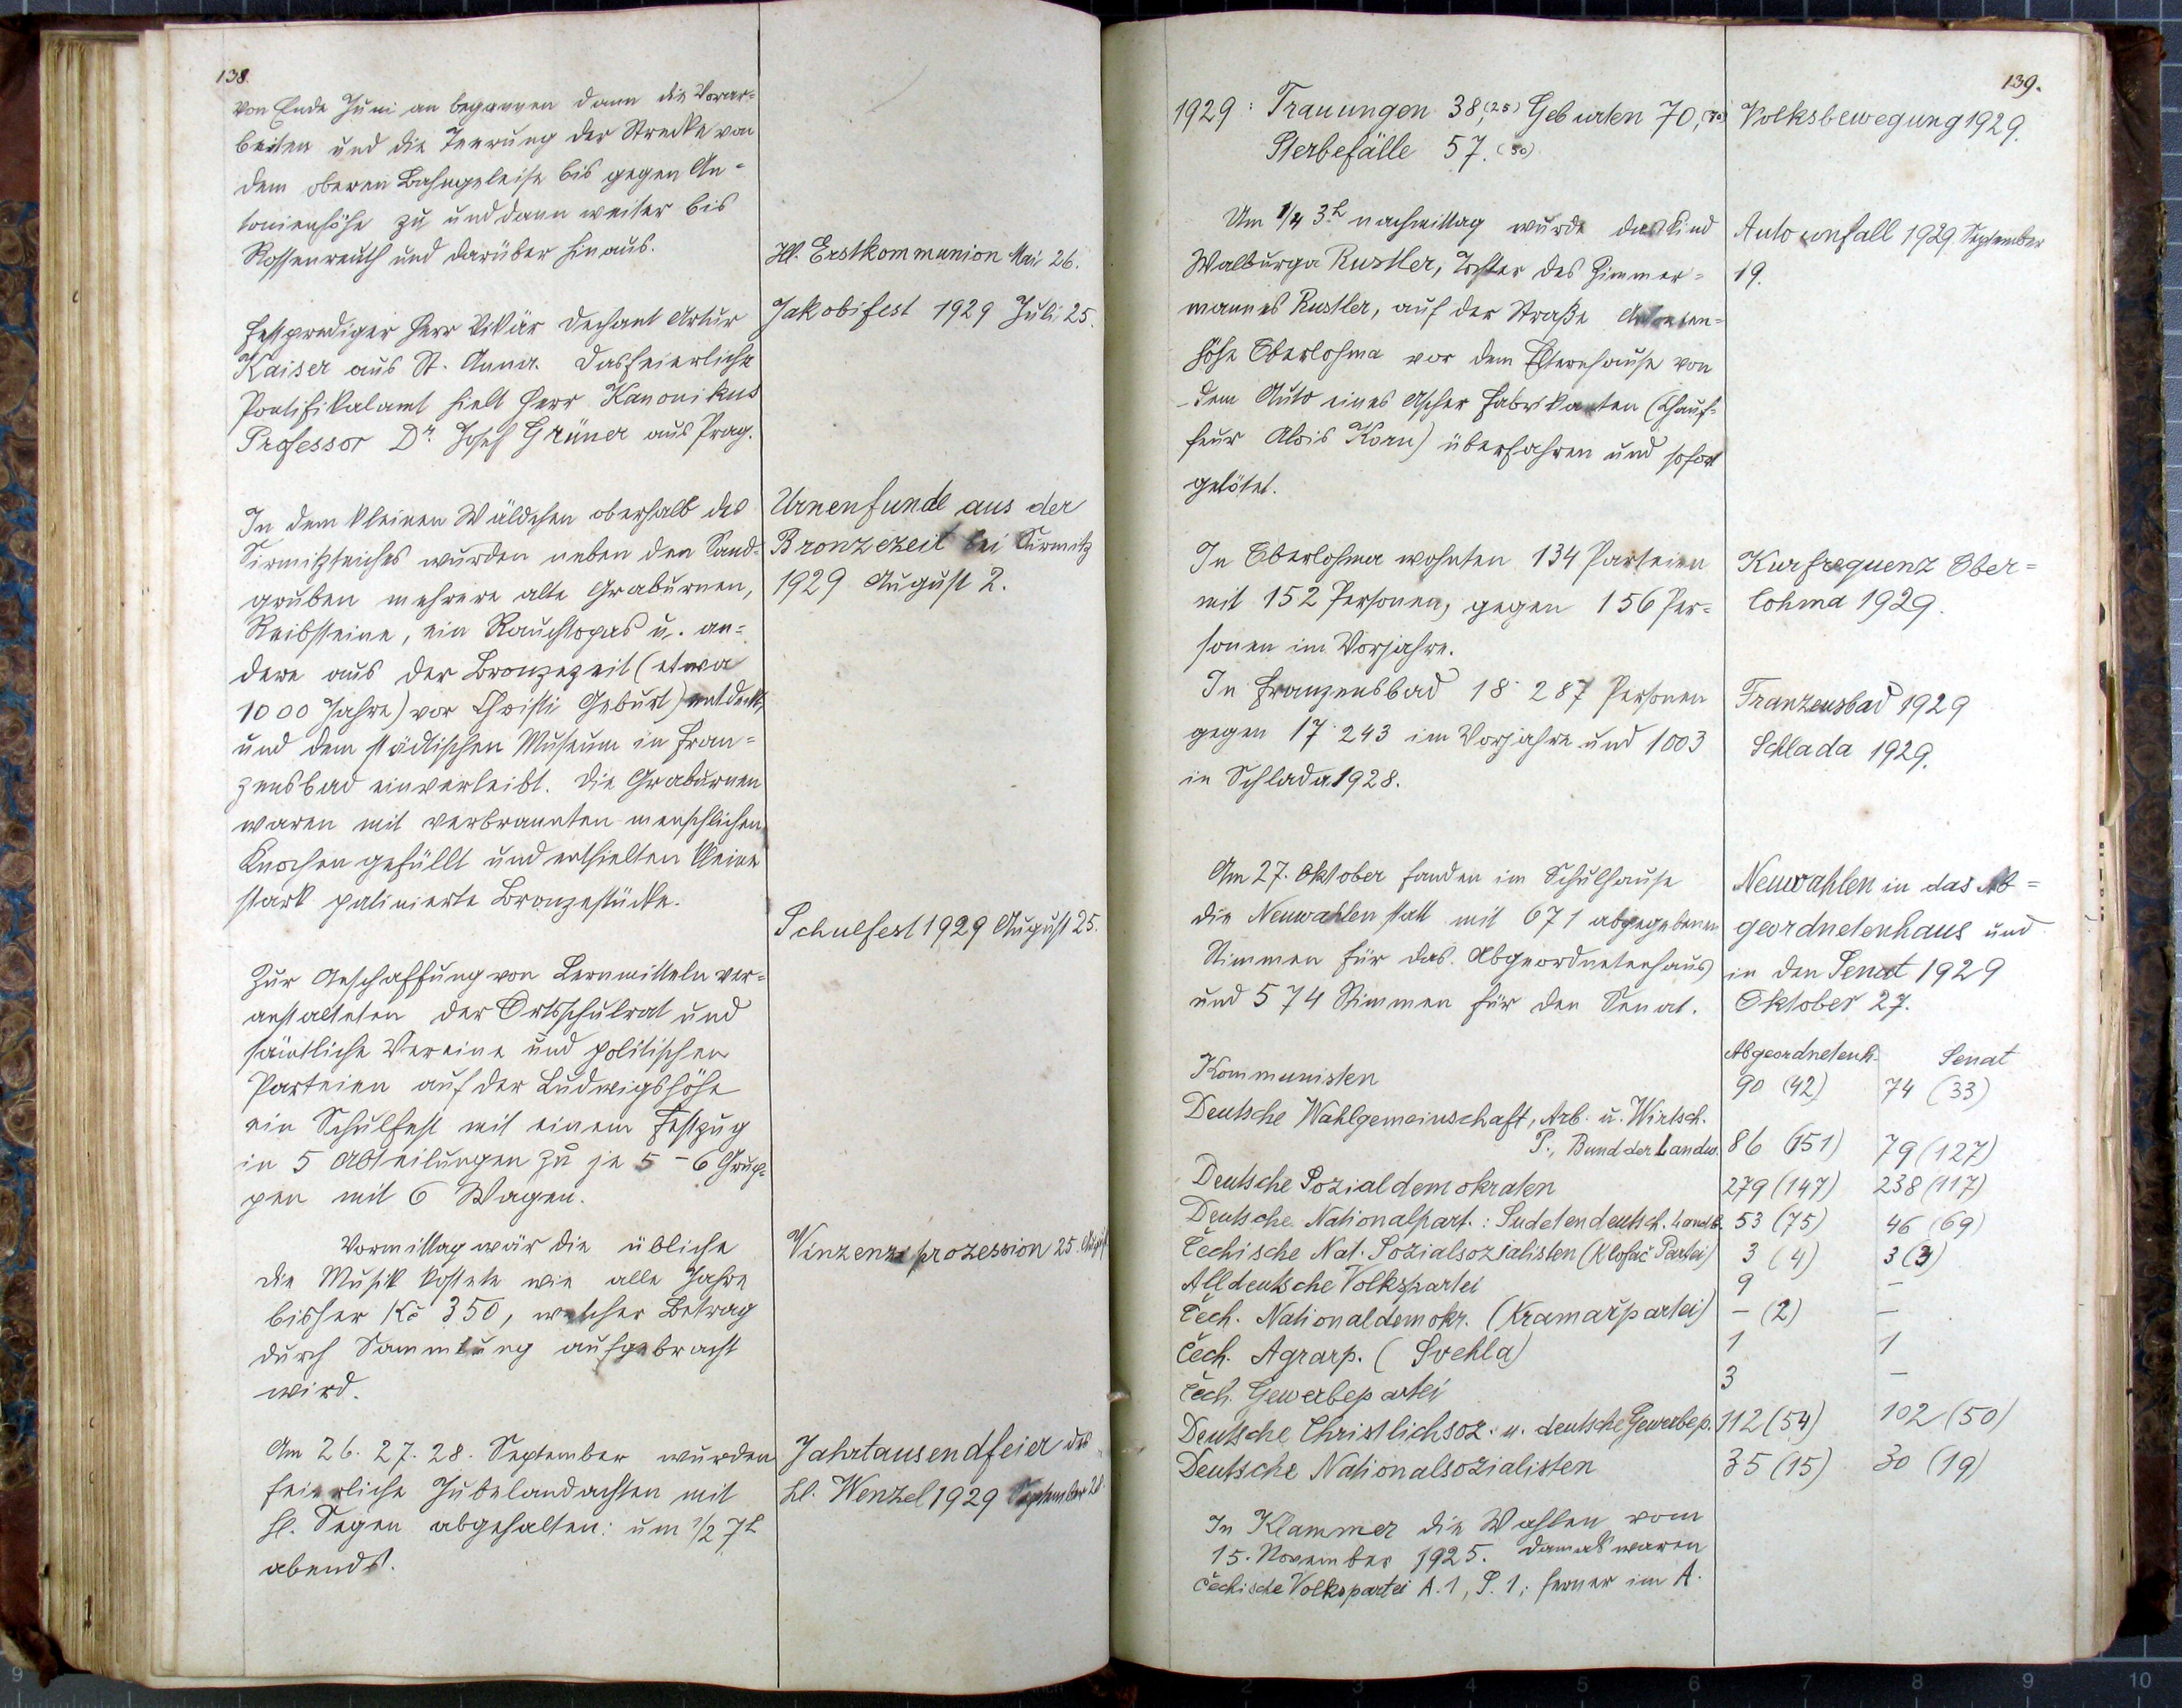 138.
von Ende Juni an begannen dann die Vorar=
beiten und die Teerung der Strecke von
dem oberen Bahngeleise bis gegen An=
tonienhöhe zu und dann weiter bis
Rossenreuth und darüber hinaus.
Hl. Erstkommunion Mai 26.
Jakobifest 1929 Juli 25.
Festprediger Herr Vikär Dechant Artur
Kaiser aus St. Anna. Das feierliche
Pontifikalamt hielt Herr Kanonikus
Professor Dr. Josef Grüner aus Prag.
Urnenfunde aus der
Bronzezeit bei Sirmitz
1929 August 2.
In dem kleinen Wäldchen oberhalb des
Sirmitzteiches wurden neben den Sand=
gruben mehrere alte Graburnen,
Reibsteine, ein Rauchtopas u. an=
dere aus der Bronzezeit (etwa
1000 Jahre) vor Christi Geburt) entdeckt,
und dem städtischen Museum in Fran=
zensbad einverleibt. Die Graburnen
waren mit verbrannten menschlichen
Knochen gefüllt und enthielten kleine
stark patinierte Bronzestücke.
Schulfest 1929 August 25.
Zur Anschaffung von Lernmitteln ver=
anstalteten der Ortsschulrat und
sämtliche Vereine und politischen
Parteien auf der Ludwigshöhe
ein Schulfest mit einem Festzug
in 5 Abteilungen zu je 5-6 Grup=
pen mit 6 Wagen.
Vinzenzprozession 25. August
Vormittag wär die übliche
die Musik kostete wie alle Jahre
bisher Kč 350, welcher Betrag
durch Sammlung aufgebracht
wird.
Jahrtausendfeier des
hl. Wenzel 1929 September 28.
Am 26. 27. 28. September wurden
feierliche Jubelandachten mit
hl. Segen abgehalten: um 1/2 7h
abends.
139.
1929: Trauungen 38, (25) Geburten 70,
Sterbefälle 57. (50)
Volksbewegung 1929.
Um 1/4 3h nachmittag wurde das Kind
Walburga Rustler, Tochter des Zimmer=
mannes Rustler, auf der Straße Antonien=
höhe Oberlohma vor dem Elternhause von
dem Auto eines Ascher Fabrikanten (Chauf=
feur Alois Korn) überfahren und sofort
getötet.
Autounfall 1929. September
19.
In Oberlohma wohnten 134 Parteien
mit 152 Personen, gegen 156 Per=
sonen im Vorjahre.
Kurfrequenz Ober=
lohma 1929.
In Franzensbad 18 287 Personen
gegen 17 243 im Vorjahre und 1003
in Schlada 1928.
Franzensbad 1929
Schlada 1929.
Am 27. Oktober fanden im Schulhause
die Neuwahlen statt mit 671 abgegebenen
Stimmen für das Abgeordnetenhaus
und 574 Stimmen für den Senat.
Neuwahlen in das Ab=
geordnetenhaus und
in den Senat 1929
Oktober 27.
Abgeordnetenh. Senat
Kommunisten 90 (42) 74 (33)
Deutsche Wahlgemeinschaft, Arb. u. Wirtsch.
P., Bund der Landw. 86 (151) 79 (127)
Deutsche Sozialdemokraten 279 (147) 238 (117)
Deutsche Nationalpart.: Sudetendeutsch. Landb. 53 (75) 46 (69)
Čechische Nat. Sozialsozialisten (Klofač Partei) 3 (4) 3 (3)
Alldeutsche Volkspartei 9 –
Čech. Nationaldemokr. (Kramařpartei) – (2) –
Čech. Agrarp. (Svehla) 1 1
Čech. Gewerbepartei 3 –
Deutsche Christlichsoz. u. deutsche Gewerbep. 112 (54) 102 (50)
Deutsche Nationalsozialisten 35 (15) 30 (19)
In Klammer die Wahlen vom
15. November 1925. Damals waren
Čechische Volkspartei A. 1, S. 1; ferner im A.
9
2 3 4 5 6 7 8 9 10